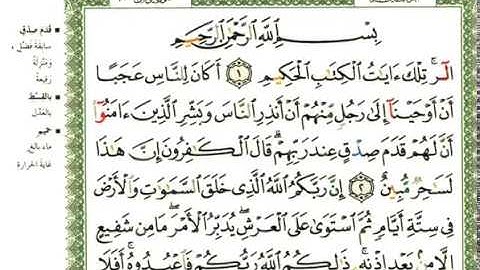 بِسْمِ ٱللَّهِ ٱلرَّحْمَٰنِ ٱلرَّحِيمِ
الٓر ۚ تِلْكَ ءَايَٰتُ ٱلْكِتَٰبِ ٱلْحَكِيمِ ١ أَكَانَ لِلنَّاسِ عَجَبًا
أَنْ أَوْحَيْنَآ إِلَىٰ رَجُلٍ مِّنْهُمْ أَنْ أَنذِرِ ٱلنَّاسَ وَبَشِّرِ ٱلَّذِينَ ءَامَنُوٓا۟
أَنَّ لَهُمْ قَدَمَ صِدْقٍ عِندَ رَبِّهِمْ ۗ قَالَ ٱلْكَٰفِرُونَ إِنَّ هَٰذَا
لَسَٰحِرٌ مُّبِينٌ ٢ إِنَّ رَبَّكُمُ ٱللَّهُ ٱلَّذِى خَلَقَ ٱلسَّمَٰوَٰتِ وَٱلْأَرْضَ
فِى سِتَّةِ أَيَّامٍ ثُمَّ ٱسْتَوَىٰ عَلَى ٱلْعَرْشِ ۖ يُدَبِّرُ ٱلْأَمْرَ ۖ مَا مِن شَفِيعٍ
إِلَّا مِنۢ بَعْدِ إِذْنِهِۦ ۚ ذَٰلِكُمُ ٱللَّهُ رَبُّكُمْ فَٱعْبُدُوهُ ۚ أَفَلَا
قَدَمَ صِدْقٍ
سابقة فضل،
ومنزلة
رفيعة
بالقسط
بالعدل
حميم
ماء بالغ
غاية الحرارة